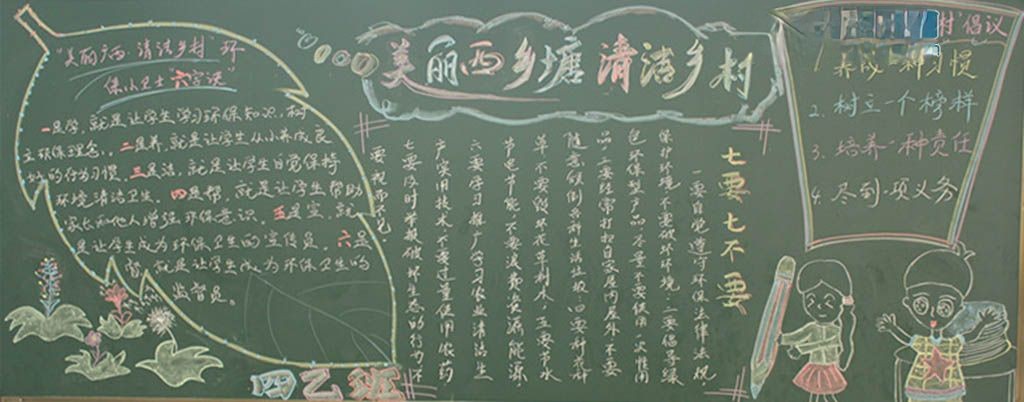 美丽西乡塘 清洁乡村
"美丽广西 清洁乡村"环
保小卫士六字诀
一是学,就是让学生学习环保知识,树
立环保理念。二是养,就是让学生从小养成良
好的行为习惯,三是洁,就是让学生自觉保持
环境清洁卫生。四是帮,就是让学生帮助
家长和他人增强环保意识。五是宣,就
是让学生成为环保卫生的宣传员。六是
督,就是让学生成为环保卫生的
监督员。
四乙班
七要七不要
一要自觉遵守环保法律法规,
保护环境,不要破坏环境;二要倡导绿
色环保型产品,不要
品;三要经常打扫自家屋内屋外,不要
随意倾倒
草,不要毁坏花草树木;五要节水
节电节能,不要浪费资源能源;
六要学习推广
七要及时举报破坏生态的行为,不
要视而不见。
村"倡议
1. 养成一种习惯
2. 树立一个榜样
3. 培养一种责任
4. 尽到一项义务